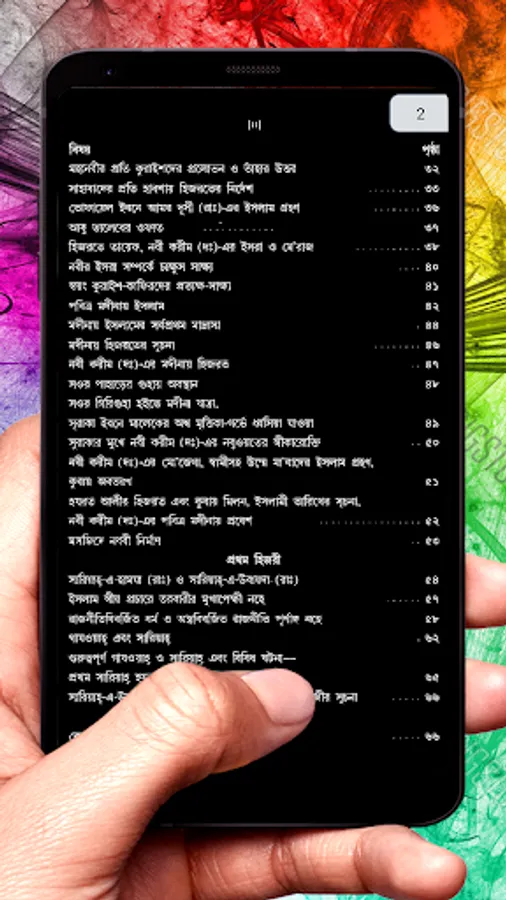 2
[৷৷]
বিষয় পৃষ্ঠা
মহানবীর প্রতি কুরাইশদের প্রলোভন ও তাঁহার উত্তর ৩২
সাহাবাদের প্রতি হাবশায় হিজরতের নির্দেশ ৩৩
তোফায়েল ইবনে আমর দূসী (রাঃ)-এর ইসলাম গ্রহণ ৩৬
আবু তালেবের ওফাত ৩৭
হিজরতে তায়েফ, নবী করীম (দঃ)-এর ইসরা ও মে'রাজ ৩৮
নবীর ইসরা সম্পর্কে চাক্ষুস সাক্ষ্য ৪০
স্বয়ং কুরাইশ-কাফিরদের প্রত্যক্ষ-সাক্ষ্য ৪১
পবিত্র মদীনায় ইসলাম ৪২
মদীনায় ইসলামের সর্বপ্রথম মাদ্রাসা ৪৪
মদীনায় হিজরতের সূচনা ৪৬
নবী করীম (দঃ)-এর মদীনায় হিজরত ৪৭
সওর পাহাড়ের গুহায় অবস্থান ৪৮
সওর গিরিগুহা হইতে মদীনা যাত্রা,
সুরাকা ইবনে মালেকের অশ্ব মৃত্তিকা-গর্ভে ধসিয়া যাওয়া ৪৯
সুরাকার মুখে নবী করীম (দঃ)-এর নবুওয়তের স্বীকারোক্তি ৫০
নবী করীম (দঃ)-এর মো'জেযা, স্বামীসহ উম্মে মা'বাদের ইসলাম গ্রহণ,
কুবায় অবতরণ ৫১
হযরত আলীর হিজরত এবং কুবায় মিলন, ইসলামী তারিখের সূচনা,
নবী করীম (দঃ)-এর পবিত্র মদীনায় প্রবেশ ৫২
মসজিদে নববী নির্মাণ ৫৩
প্রথম হিজরী
সারিয়াহ্-এ-হামযা (রাঃ) ও সারিয়াহ্-এ-উবায়দা (রাঃ) ৫৪
ইসলাম স্বীয় প্রচারে তরবারীর মুখাপেক্ষী নহে ৫৭
রাজনীতিবিবর্জিত ধর্ম ও অস্ত্রবিবর্জিত রাজনীতি পূর্ণাঙ্গ নহে ৫৮
গাযওয়াহ্ এবং সারিয়াহ্ ৬২
গুরুত্বপূর্ণ গাযওয়াহ্ ও সারিয়াহ্ এবং বিবিধ ঘটনা—
প্রথম সারিয়াহ্ ৬৫
সারিয়াহ্-এ-উ সূচনা ৬৬
৬৬